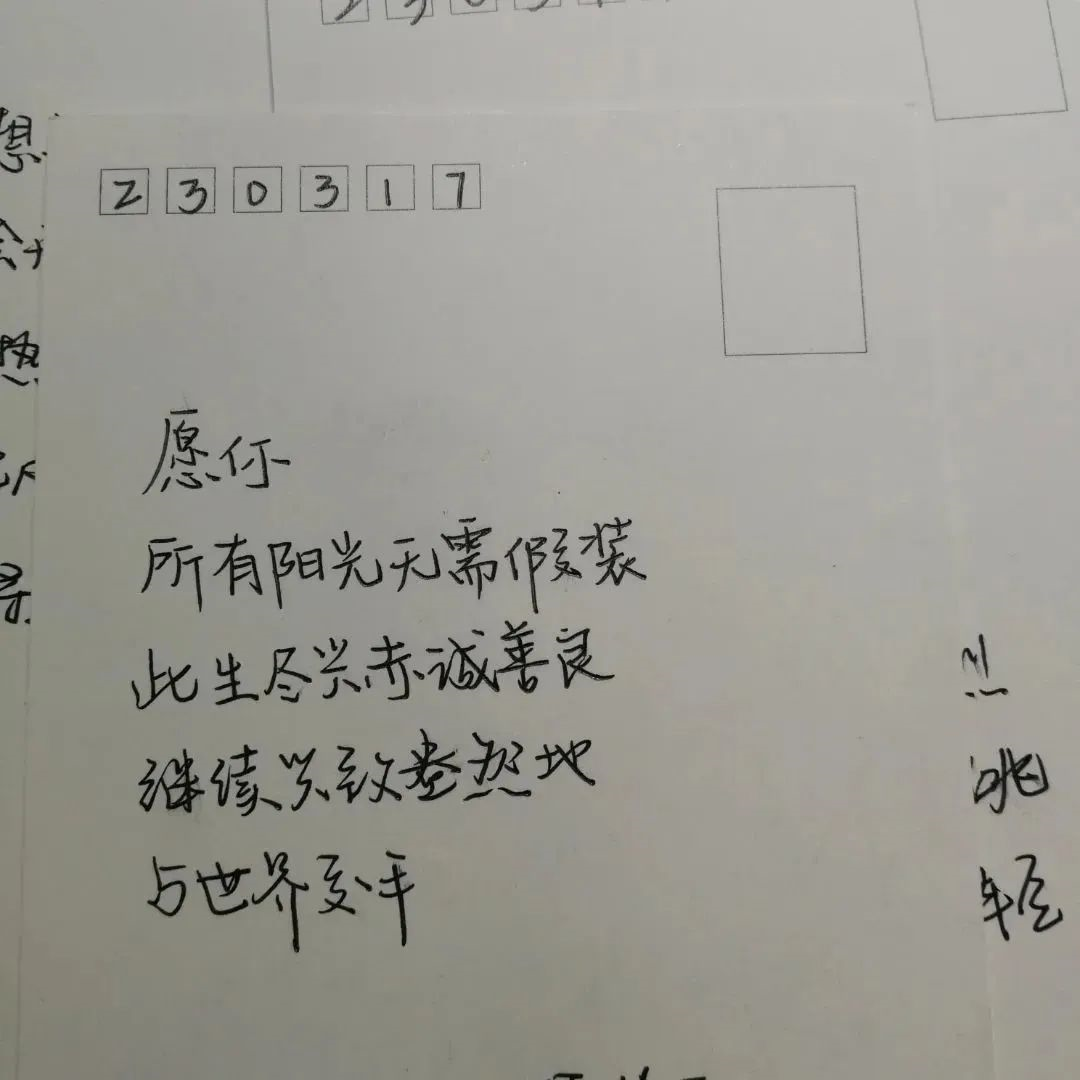 230317
愿你
所有阳光无需假装
此生尽兴赤诚善良
继续兴致盎然地
与世界交手
想
然
兆
轻